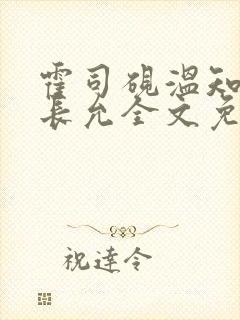 霍司砚温知
长允全文免
祝達令